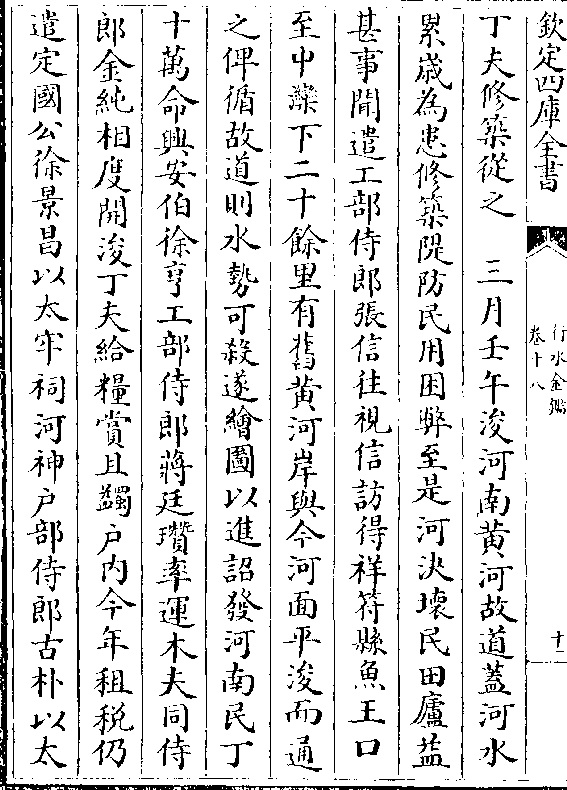 欽定四庫全書
行水金鑑
卷十八
十一
丁夫修築從之　三月壬午浚河南黃河故道蓋河水
累歲為患修築隄防民用困弊至是河決壞民田廬益
甚事聞遣工部侍郎張信往視信訪得祥符縣魚王口
至中灤下二十餘里有舊黃河岸與今河面平浚而通
之俾循故道則水勢可殺遂繪圖以進詔發河南民丁
十萬命興安伯徐亨工部侍郎蔣廷瓚率運木夫同侍
郎金純相度開浚丁夫給糧賞且蠲戶內今年租稅仍
遣定國公徐景昌以太牢祠河神戶部侍郎古朴以太